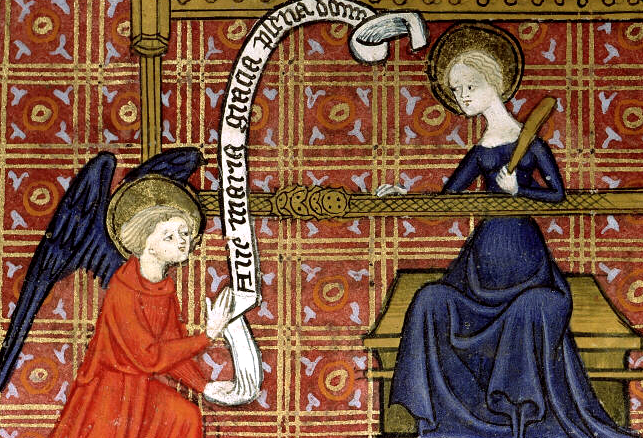 Aue maria gracia plena dom